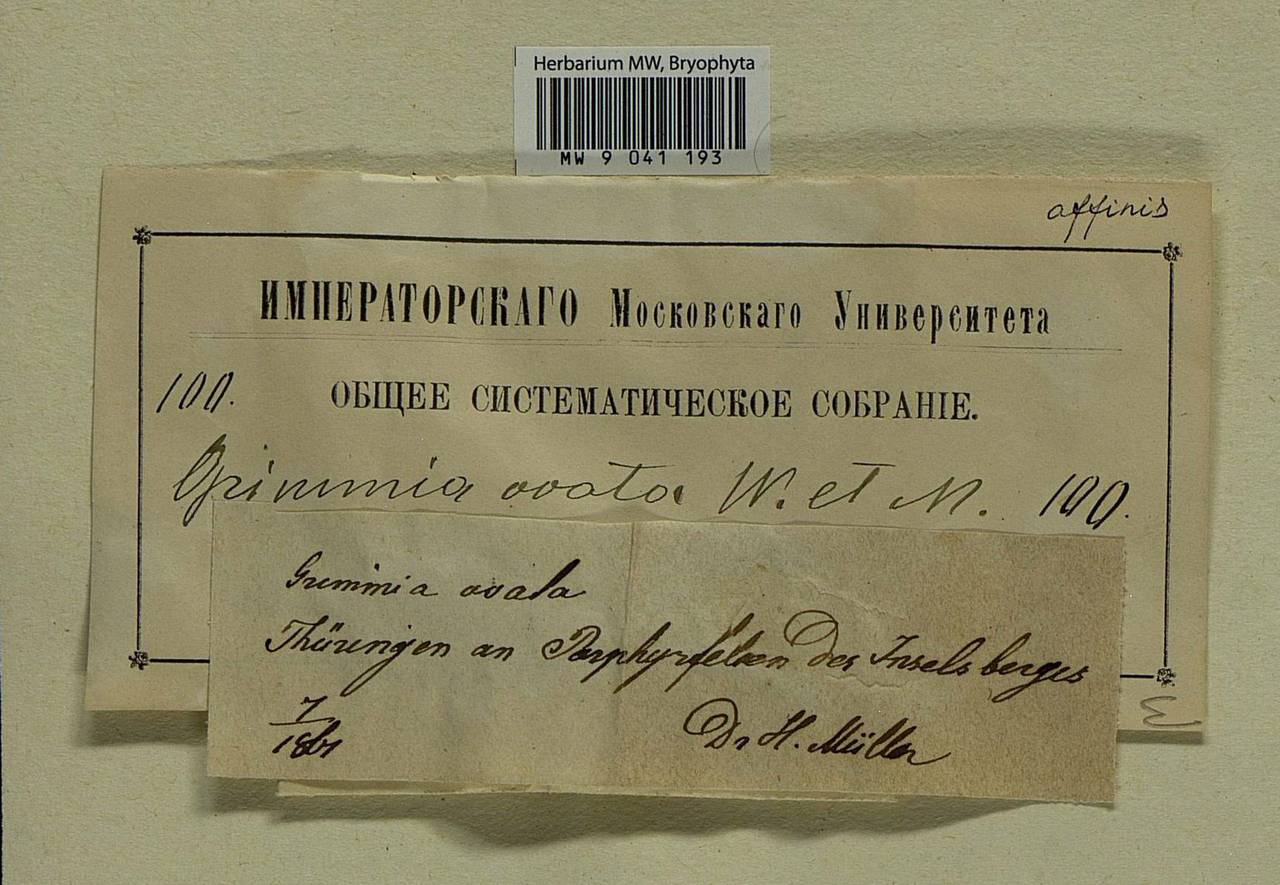 Herbarium MW, Bryophyta
MW 9 041 193
affinis
ИМПЕРАТОРСКАГО Московскаго Университета
100. ОБЩЕЕ СИСТЕМАТИЧЕСКОЕ СОБРАНІЕ.
Grimmia ovata W. et M. 100.
Grimmia ovata
Thüringen an Porphyrfelsen des Inselsberges
7/1861 Dr H. Müller